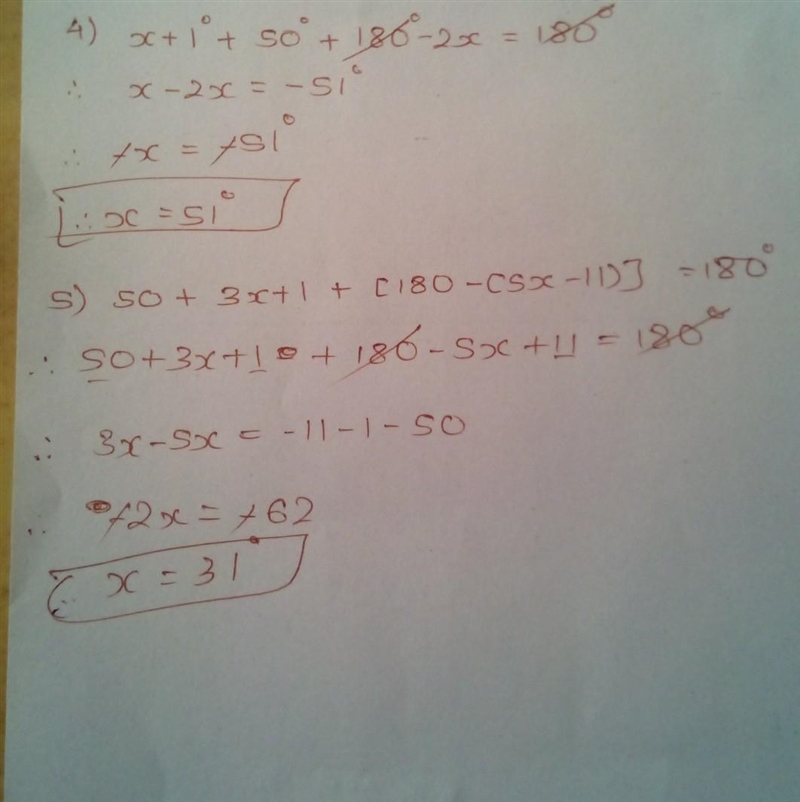 4) x+1° + 50° + 180° - 2x = 180°
∴ x - 2x = -51°
∴ -x = -51°
∴ x = 51°
5) 50 + 3x+1 + [180 - (5x - 11)] = 180°
∴ 50+3x+1 + 180 - 5x + 11 = 180°
∴ 3x - 5x = -11 - 1 - 50
∴ -2x = -62
∴ x = 31°